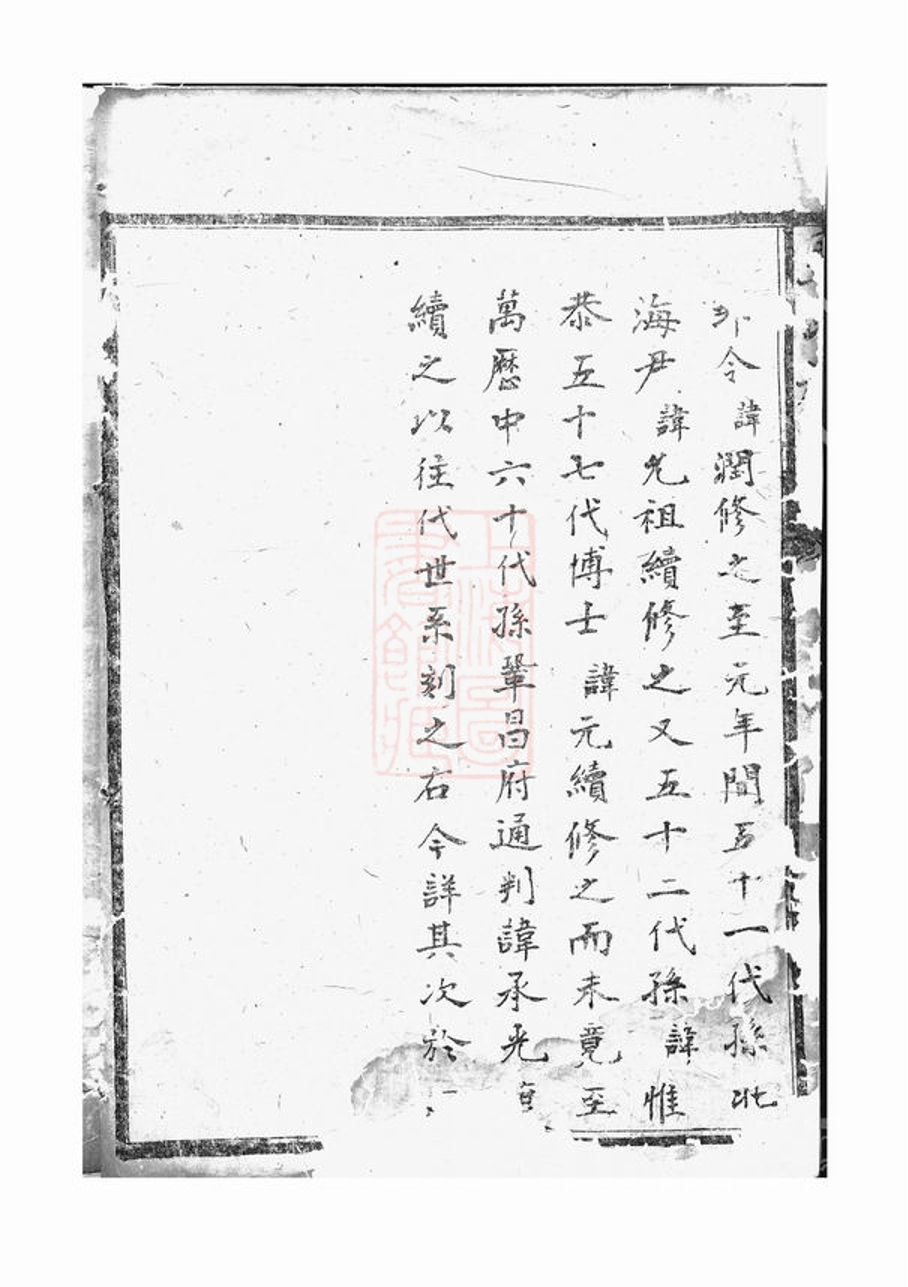 令諱潤修之至元年間五十一代孫北
海尹諱允祖續修之又五十二代孫諱惟
恭五十七代博士諱元續修之而未竟至
萬曆中六十代孫鞏昌府通判諱承光
續之以往代世系刻之右今詳其次於
上海圖書館藏